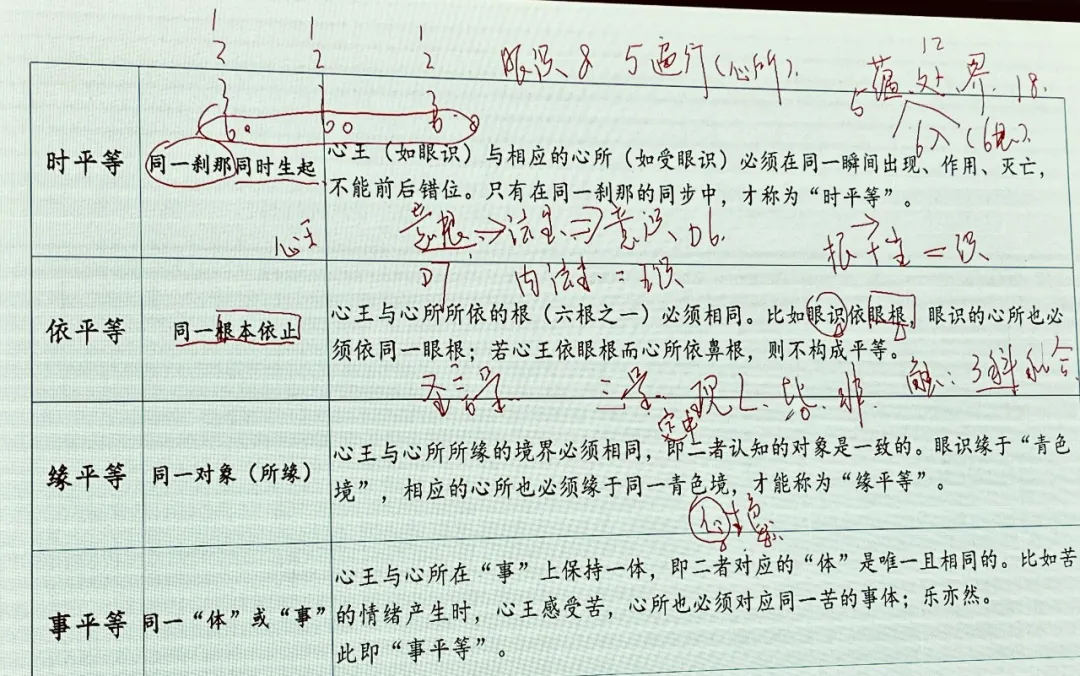 1 1 1
2 2 2
眼识 & 5遍行(心所).
12
5蕴.处.界.18.
6入(6根)
时平等
同一刹那同时生起
心王（如眼识）与相应的心所（如受眼识）必须在同一瞬间出现、作用、灭亡，
不能前后错位。只有在同一刹那的同步中，才称为“时平等”。
心王
意根
意识
D6.
D7
根
= 识
依平等
同一根本依止
心王与心所所依的根（六根之一）必须相同。比如眼识依眼根，眼识的心所也必
须依同一眼根；若心王依眼根而心所依鼻根，则不构成平等。
三量
现
比
非
定中
触：3和合
缘平等
同一对象（所缘）
心王与心所所缘的境界必须相同，即二者认知的对象是一致的。眼识缘于“青色
境”，相应的心所也必须缘于同一青色境，才能称为“缘平等”。
心
事平等
同一“体”或“事”
心王与心所在“事”上保持一体，即二者对应的“体”是唯一且相同的。比如苦
的情绪产生时，心王感受苦，心所也必须对应同一苦的事体；乐亦然。
此即“事平等”。